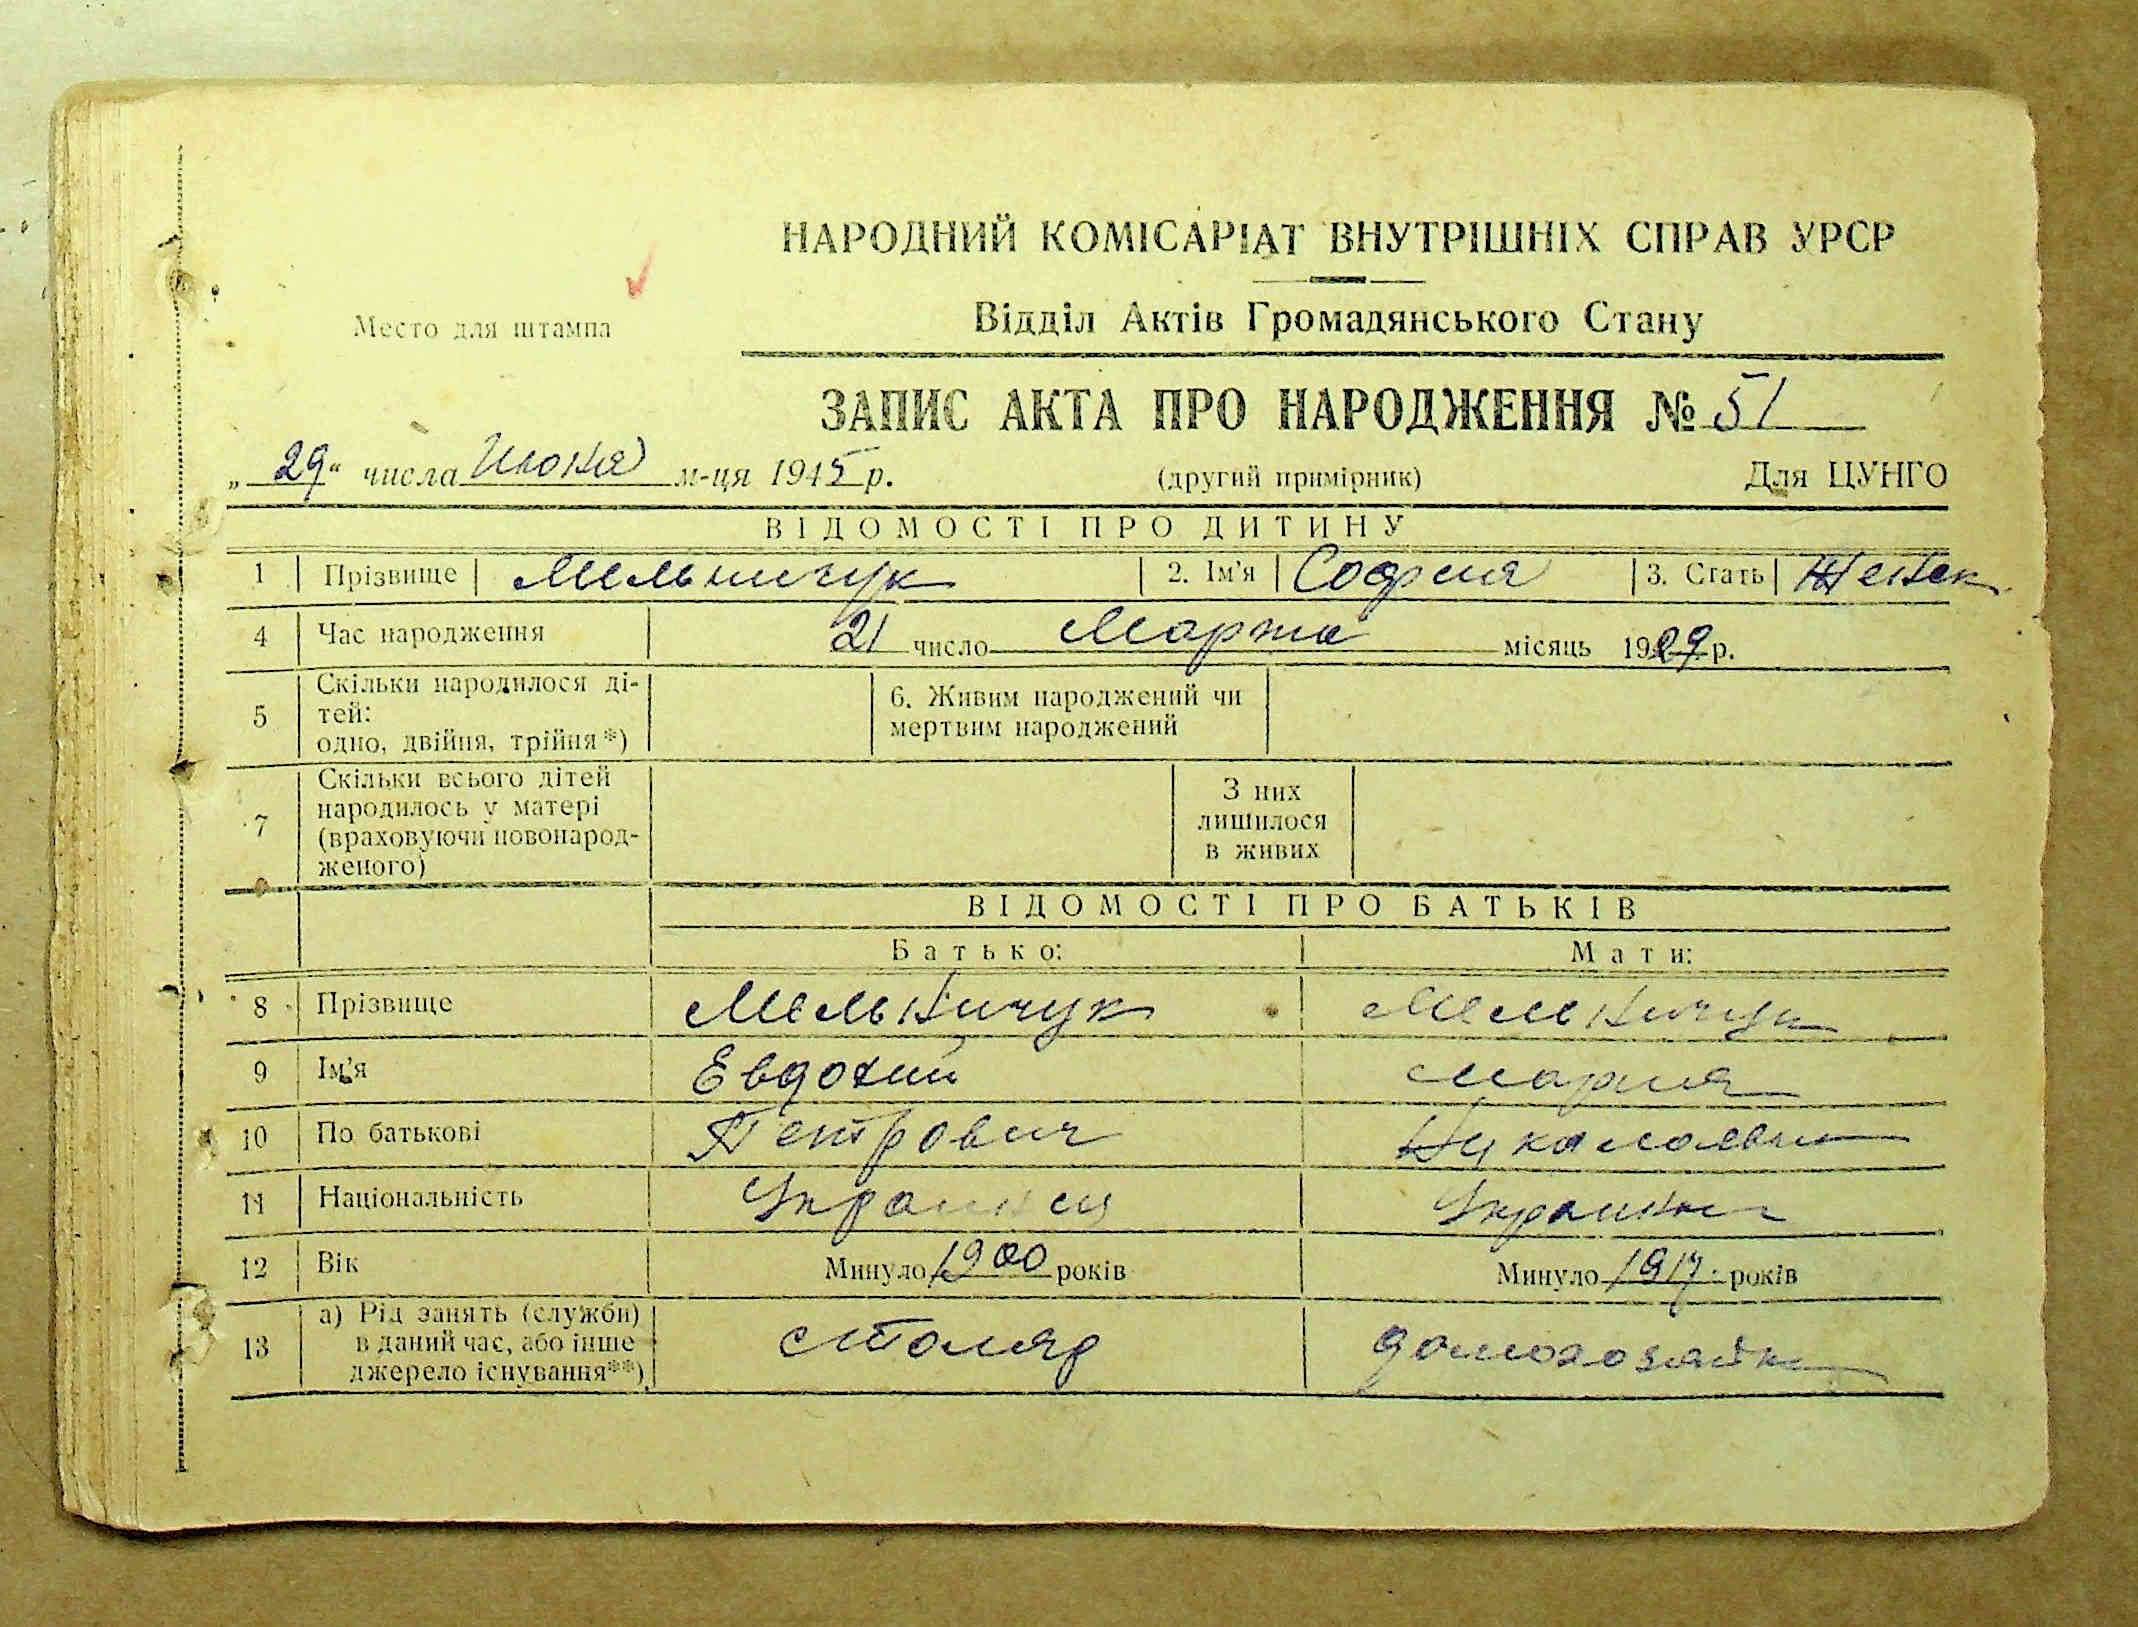 НАРОДНИЙ КОМІСАРІАТ ВНУТРІШНІХ СПРАВ УРСР
Место для штампа
Відділ Актів Громадянського Стану
ЗАПИС АКТА ПРО НАРОДЖЕННЯ № 51
„29“ числа Июня м-ця 1945 р. (другий примірник) Для ЦУНГО
ВІДОМОСТІ ПРО ДИТИНУ
1 Прізвище Мельничук 2. Ім’я София 3. Стать Женск
4 Час народження 21 число Марта місяць 1929 р.
5 Скільки народилося ді-
тей:
одно, двійня, трійня*)
6. Живим народжений чи
мертвим народжений
7 Скільки всього дітей
народилось у матері
(враховуючи новонарод-
женого)
З них
лишилося
в живих
ВІДОМОСТІ ПРО БАТЬКІВ
Батько: Мати:
8 Прізвище Мельничук Мельничук
9 Ім’я Евдоким Мария
10 По батькові Петрович
11 Національність Украинец Украинка
12 Вік Минуло 1900 років Минуло 1917 років
13 а) Рід занять (служби)
в даний час, або інше
джерело існування**)
столяр домохозяйка